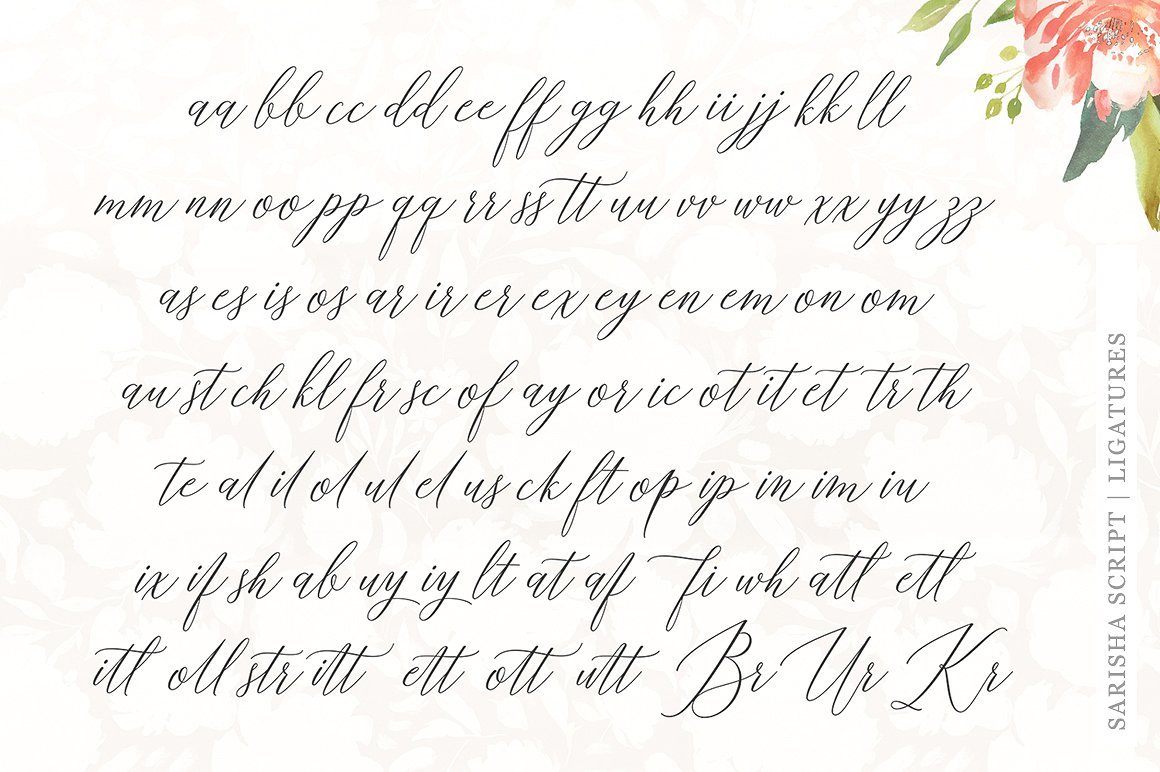 aa bb cc dd ee ff gg hh ii jj kk ll
mm nn oo pp qq rr ss tt uu vv ww xx yy zz
as es is os ar ir er ex ey en em on om
au st ch kl fr sc of ay or ic ot it et tr th
te al il ol ul el us ck ft op ip in im iu
ix if sh ab uy iy lt at af fi wh all ell
itl oll str itt ett ott utt Br Ur Kr
SARISHA SCRIPT | LIGATURES